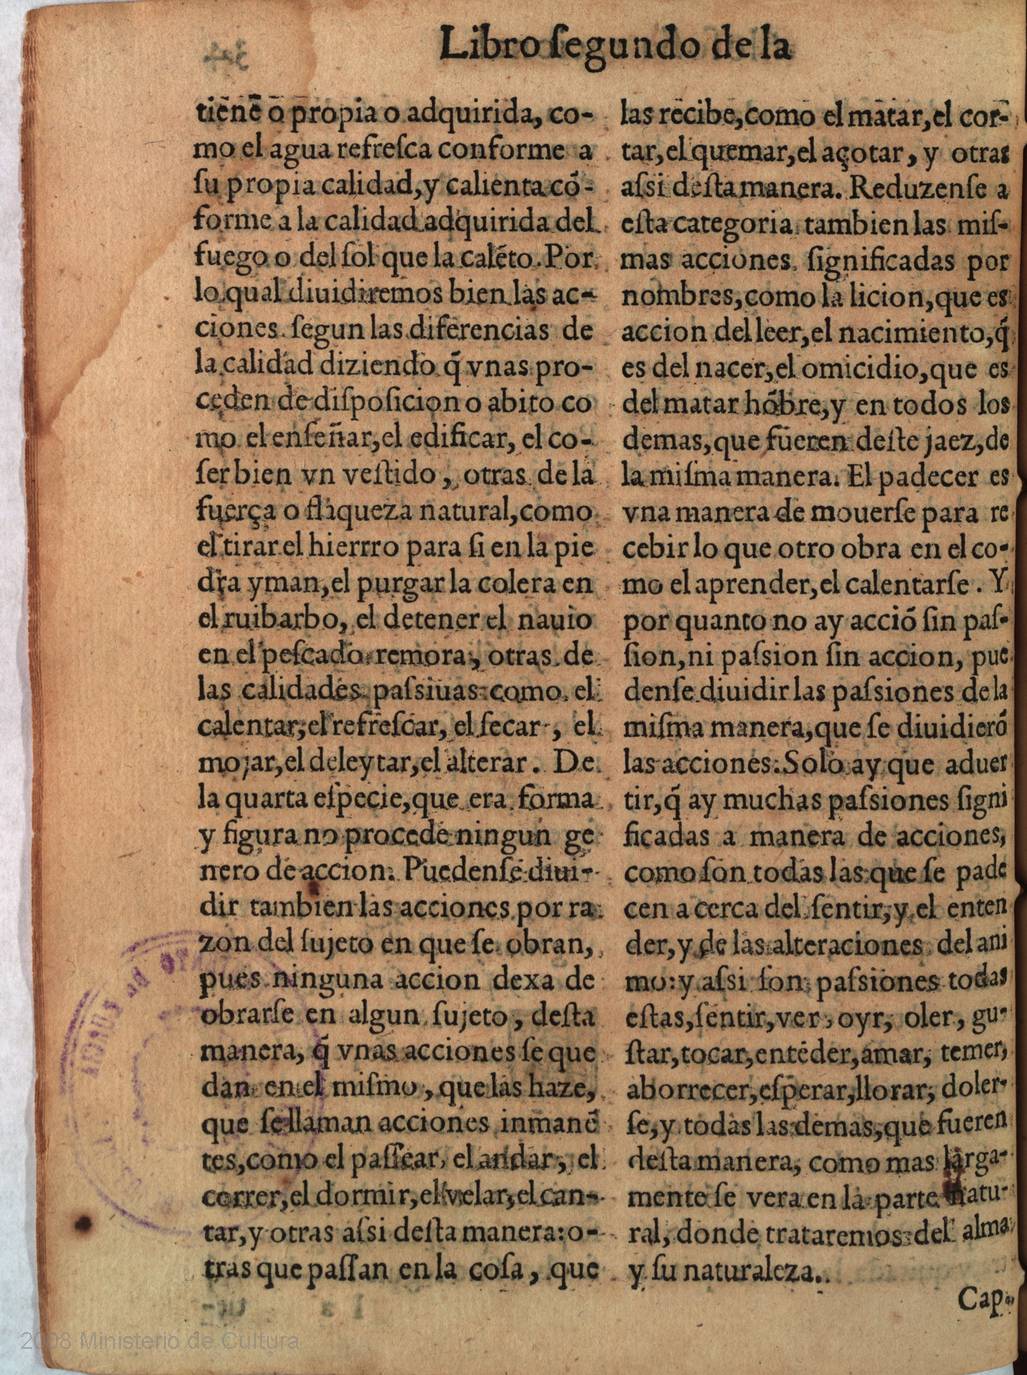 Libro ſegundo de la
tienē o propia o adquirida, co-
mo el agua refreſca conforme a
ſu propia calidad, y calienta cō-
forme a la calidad adquirida del
fuego o del ſol que la calēto. Por
lo qual diuidiremos bien las ac-
ciones ſegun las diferencias de
la calidad diziendo q̄ vnas pro-
ceden de diſpoſicion o abito co
mo el enſeñar, el edificar, el co-
ſer bien vn veſtido, otras de la
fuerça o flaqueza natural, como
el tirar el hierrro para ſi en la pie
dra yman, el purgar la colera en
el ruibarbo, el detener el nauio
en el peſcado remora, otras de
las calidades paſsiuas como el
calentar, el refreſcar, el ſecar, el
mojar, el deleytar, el alterar. De
la quarta eſpecie, que era forma
y figura no procede ningun ge
nero de accion. Puedenſe diui-
dir tambien las acciones por ra
zon del ſujeto en que ſe obran,
pues ninguna accion dexa de
obrarſe en algun ſujeto, deſta
manera, q̄ vnas acciones ſe que
dan en el miſmo, que las haze,
que ſe llaman acciones inmanē
tes, como el paſſear, el andar, el
correr, el dormir, el velar, el can-
tar, y otras aſsi deſta manera: o-
tras que paſſan en la coſa, que
las recibe, como el matar, el cor-
tar, el quemar, el açotar, y otras
aſsi deſta manera. Reduzenſe a
eſta categoria tambien las miſ-
mas acciones ſignificadas por
nombres, como la licion, que es
accion del leer, el nacimiento, q̄
es del nacer, el omicidio, que es
del matar hōbre, y en todos los
demas, que fueren deſte jaez, de
la miſma manera. El padecer es
vna manera de mouerſe para re
cebir lo que otro obra en el co-
mo el aprender, el calentarſe. Y
por quanto no ay acciō ſin paſ-
ſion, ni paſsion ſin accion, pue
denſe diuidir las paſsiones de la
miſma manera, que ſe diuidierō
las acciones. Solo ay que aduer
tir, q̄ ay muchas paſsiones ſigni
ficadas a manera de acciones,
como ſon todas las que ſe pade
cen acerca del ſentir, y el enten
der, y de las alteraciones del ani
mo: y aſsi ſon paſsiones todas
eſtas, ſentir, ver, oyr, oler, gu-
ſtar, tocar, entēder, amar, temer,
aborrecer, eſperar, llorar, doler-
ſe, y todas las demas, que fueren
deſta manera, como mas larga-
mente ſe vera en la parte natu-
ral, donde trataremos del alma
y ſu naturaleza.
Cap.
2008 Ministerio de Cultura